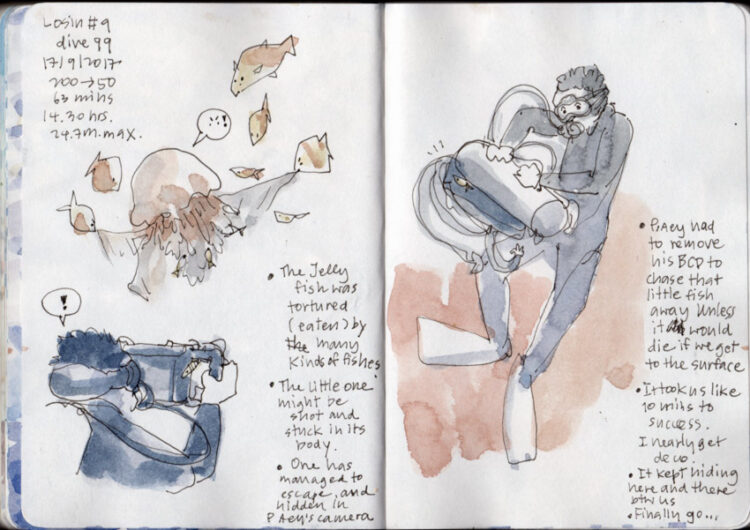 Losin #9
dive 99
17/9/2017
200→50
63 mins
14.30 hrs.
24.7m.max.
!
• The Jelly
fish was
tortured
(eaten) by
the many
kinds of fishes
• The little one
might be
shot and
stuck in its
body.
• One has
managed to
escape, and
hidden in
PAey's camera
• PAey had
to remove
his BCD to
chase that
little fish
away Unless
it would
die if we get
to the surface
• It took us like
10 mins to
success.
I nearly get
deco.
• It kept hiding
here and there
btw us
• Finally go...